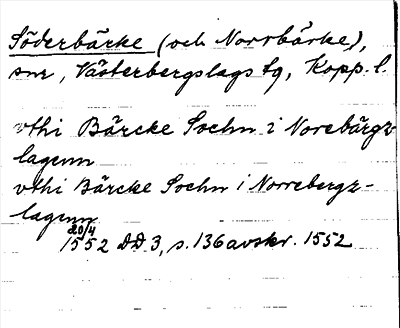 Söderbärke (och Norrbärke),
snr, Västerbergslags tg, Kopp. l.
vthi Bärcke Sochn i Norebärgz
lagenn
vthi Bärcke Sochn i Norrebergz-
lagenn
20/4
1552 DD. 3, s. 136 avskr. 1552